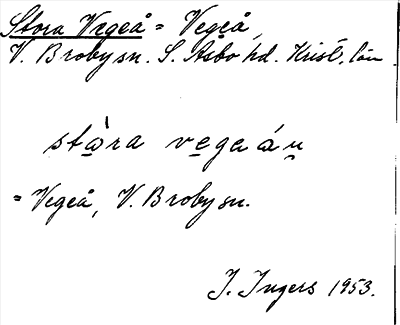 Stora Vegeå = Vegeå,
V. Broby sn. S. Åsbo hd. Krist. län
stò̤ra ve̤gaáṳ
= Vegeå, V. Broby sn.
J. Ingers 1953.